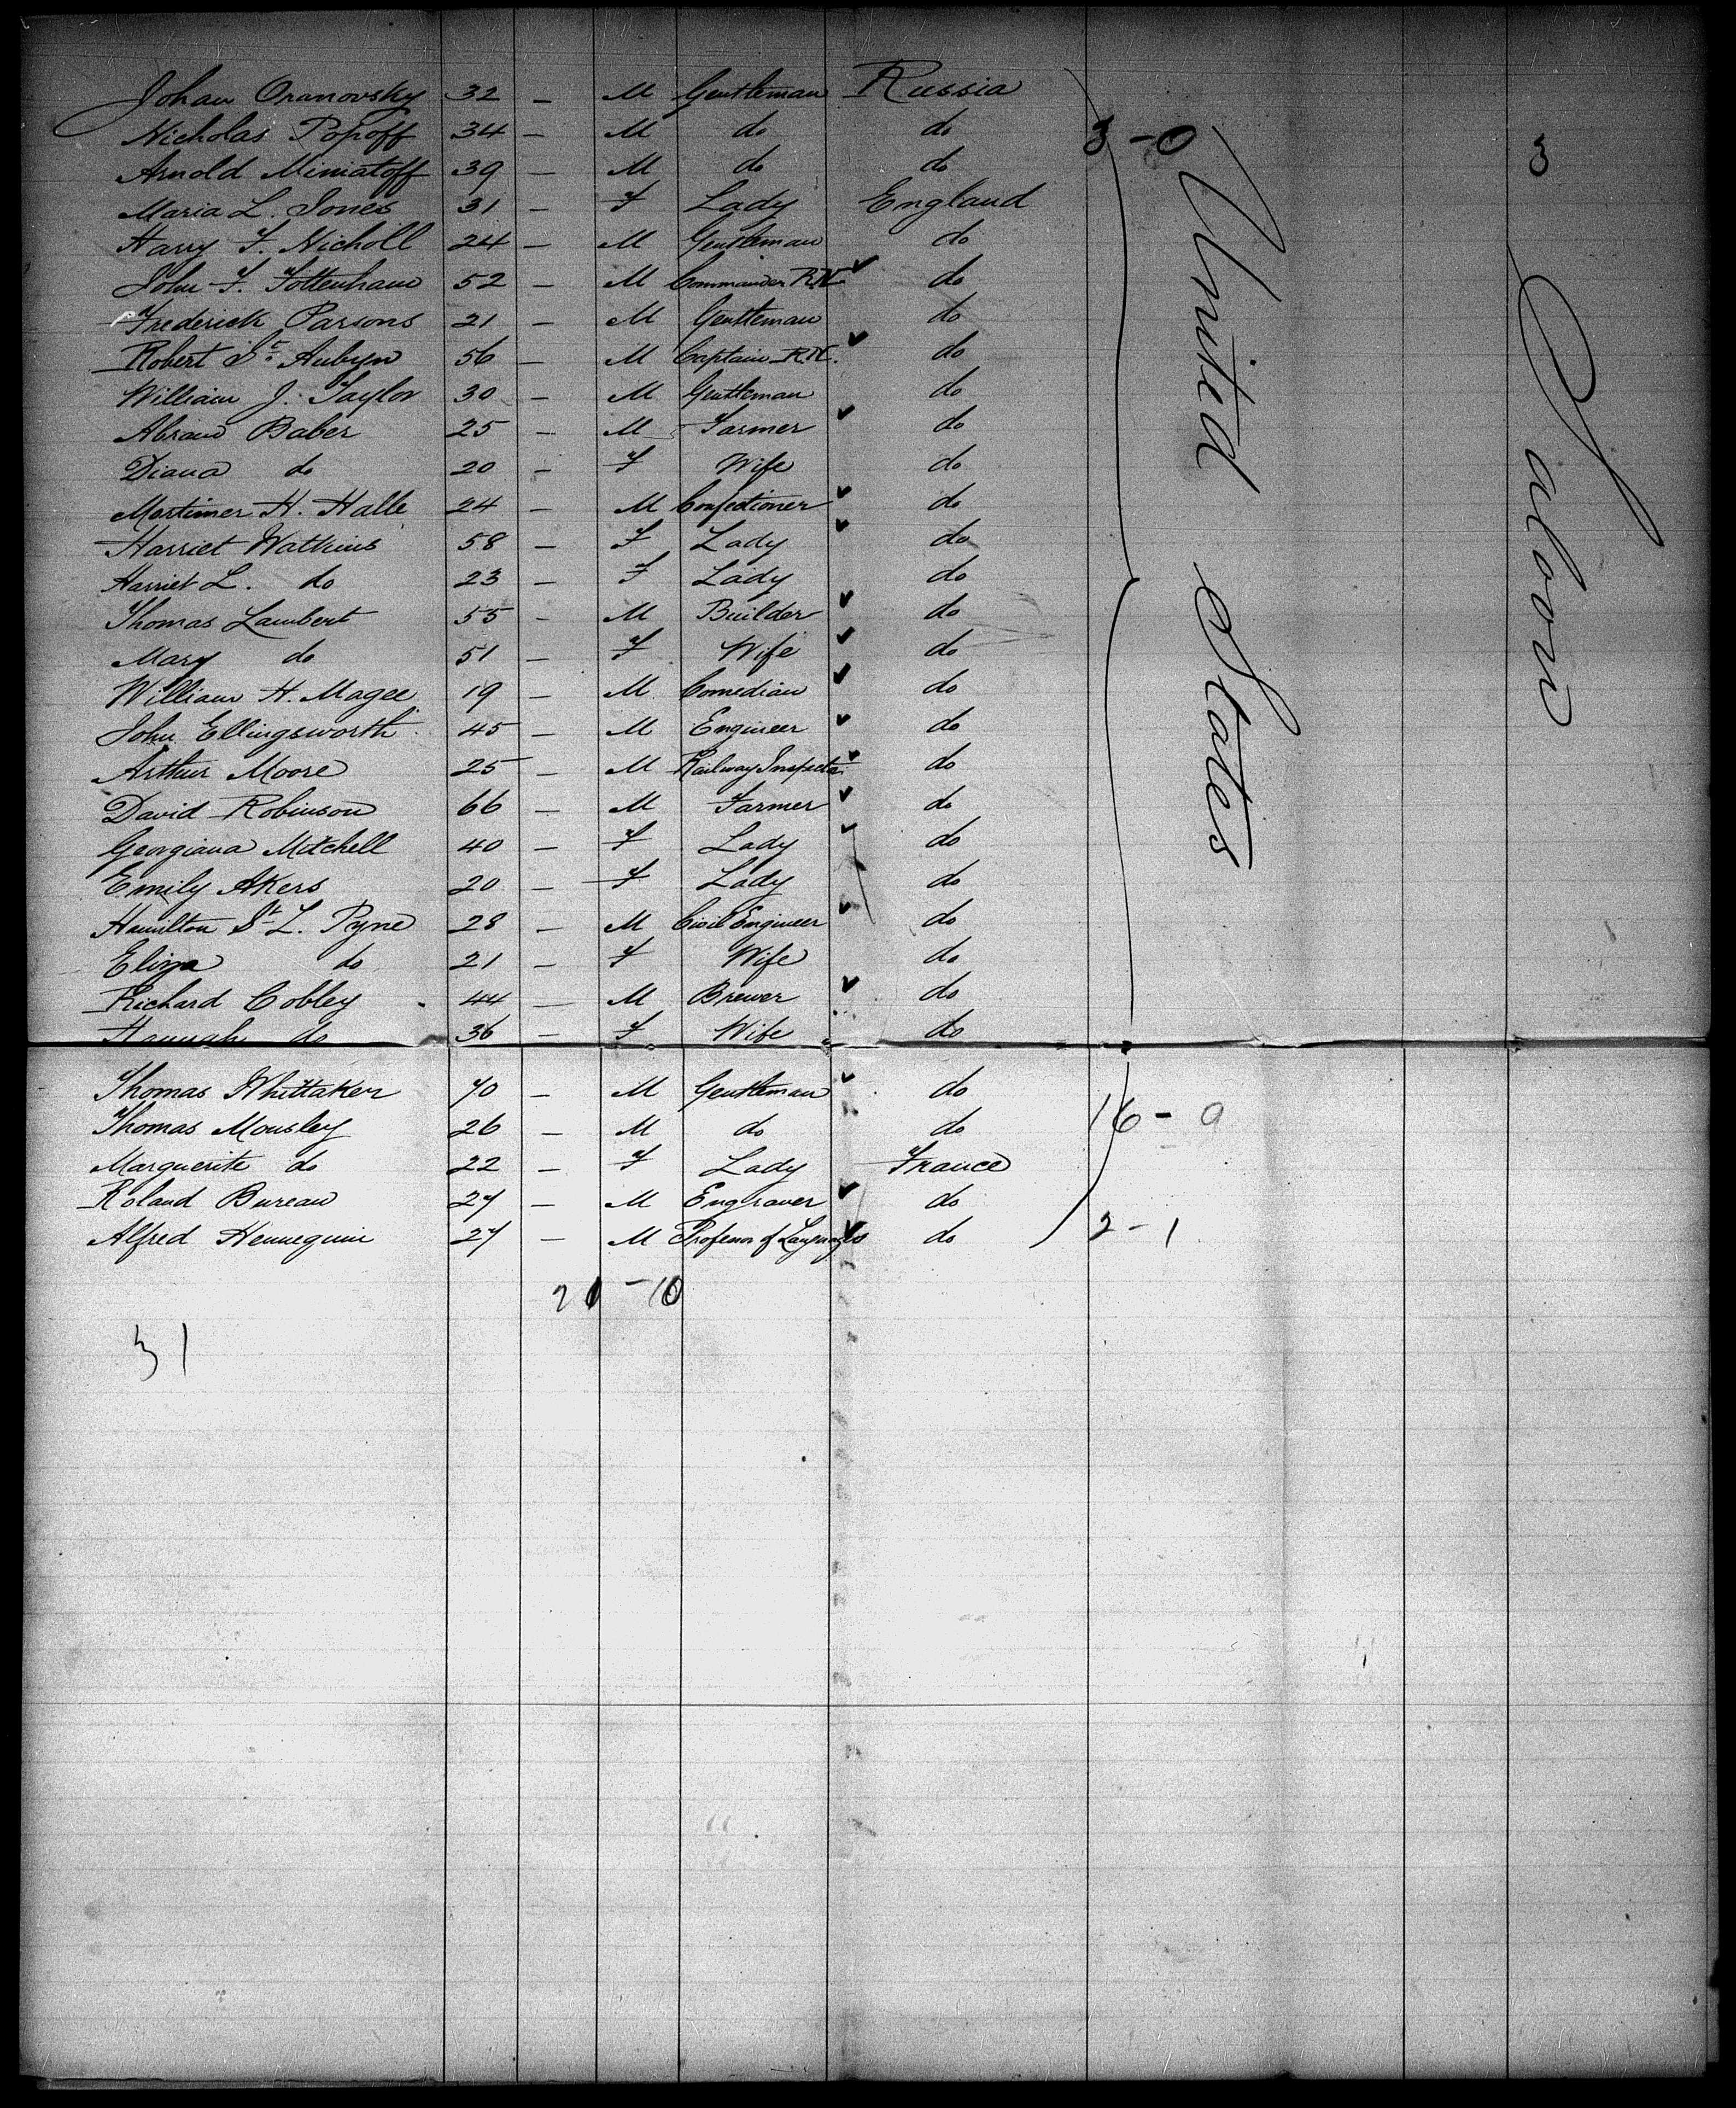 Johan Oranovsky 32 — M Gentleman Russia
Nicholas Popoff 34 — M do do 3 - 0 3
Arnold Miniatoff 39 — M do do
Maria L. Jones 31 — F Lady England
Harry F. Nicholl 24 — M Gentleman do
John F. Tottenham 52 — M Commander R.N. do
Frederick Parsons 21 — M Gentleman do
Robert St. Aubyn 56 — M Captain R.N. do
William J. Taylor 30 — M Gentleman do
Abram Baber 25 — M Farmer do
Diana do 20 — F Wife do
Mortimer H. Halle 24 — M Confectioner do
Harriet Watkins 58 — F Lady do
Harriet L. do 23 — F Lady do
Thomas Lambert 55 — M Builder do
Mary do 51 — F Wife do
William H. Magee 19 — M Comedian do
John Ellingsworth 45 — M Engineer do
Arthur Moore 25 — M Railway Inspector do
David Robinson 66 — M Farmer do
Georgiana Mitchell 40 — F Lady do
Emily Akers 20 — F Lady do
Hamilton St. L. Pyne 28 — M Civil Engineer do
Eliza do 21 — F Wife do
Richard Cobley 44 — M Brewer do
Hannah do 36 — F Wife do
Thomas Whittaker 70 — M Gentleman do
Thomas Mousley 26 — M do do 16 - 9
Marguerite do 22 — F Lady France
Roland Bureau 27 — M Engraver do
Alfred Hennequin 27 — M Professor of Languages do 2 - 1
21 - 10
31
United States
Saloon